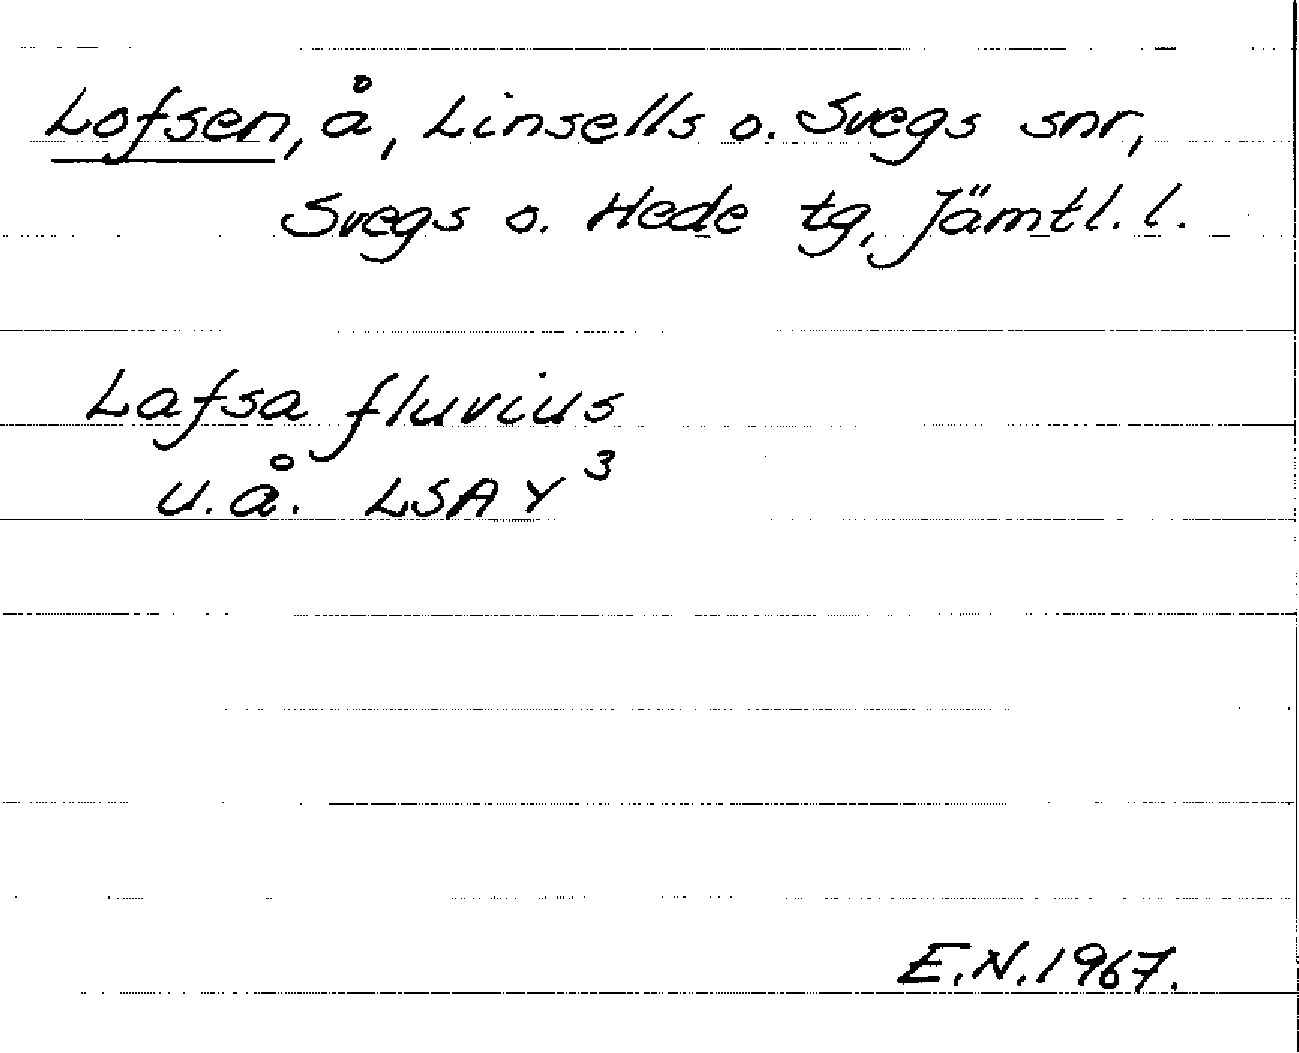 Lofsen, å, Linsells o. Svegs snr,
Svegs o. Hede tg, Jämtl. l.
Lafsa fluvius
u.å. LSA Y³
E.N. 1967.